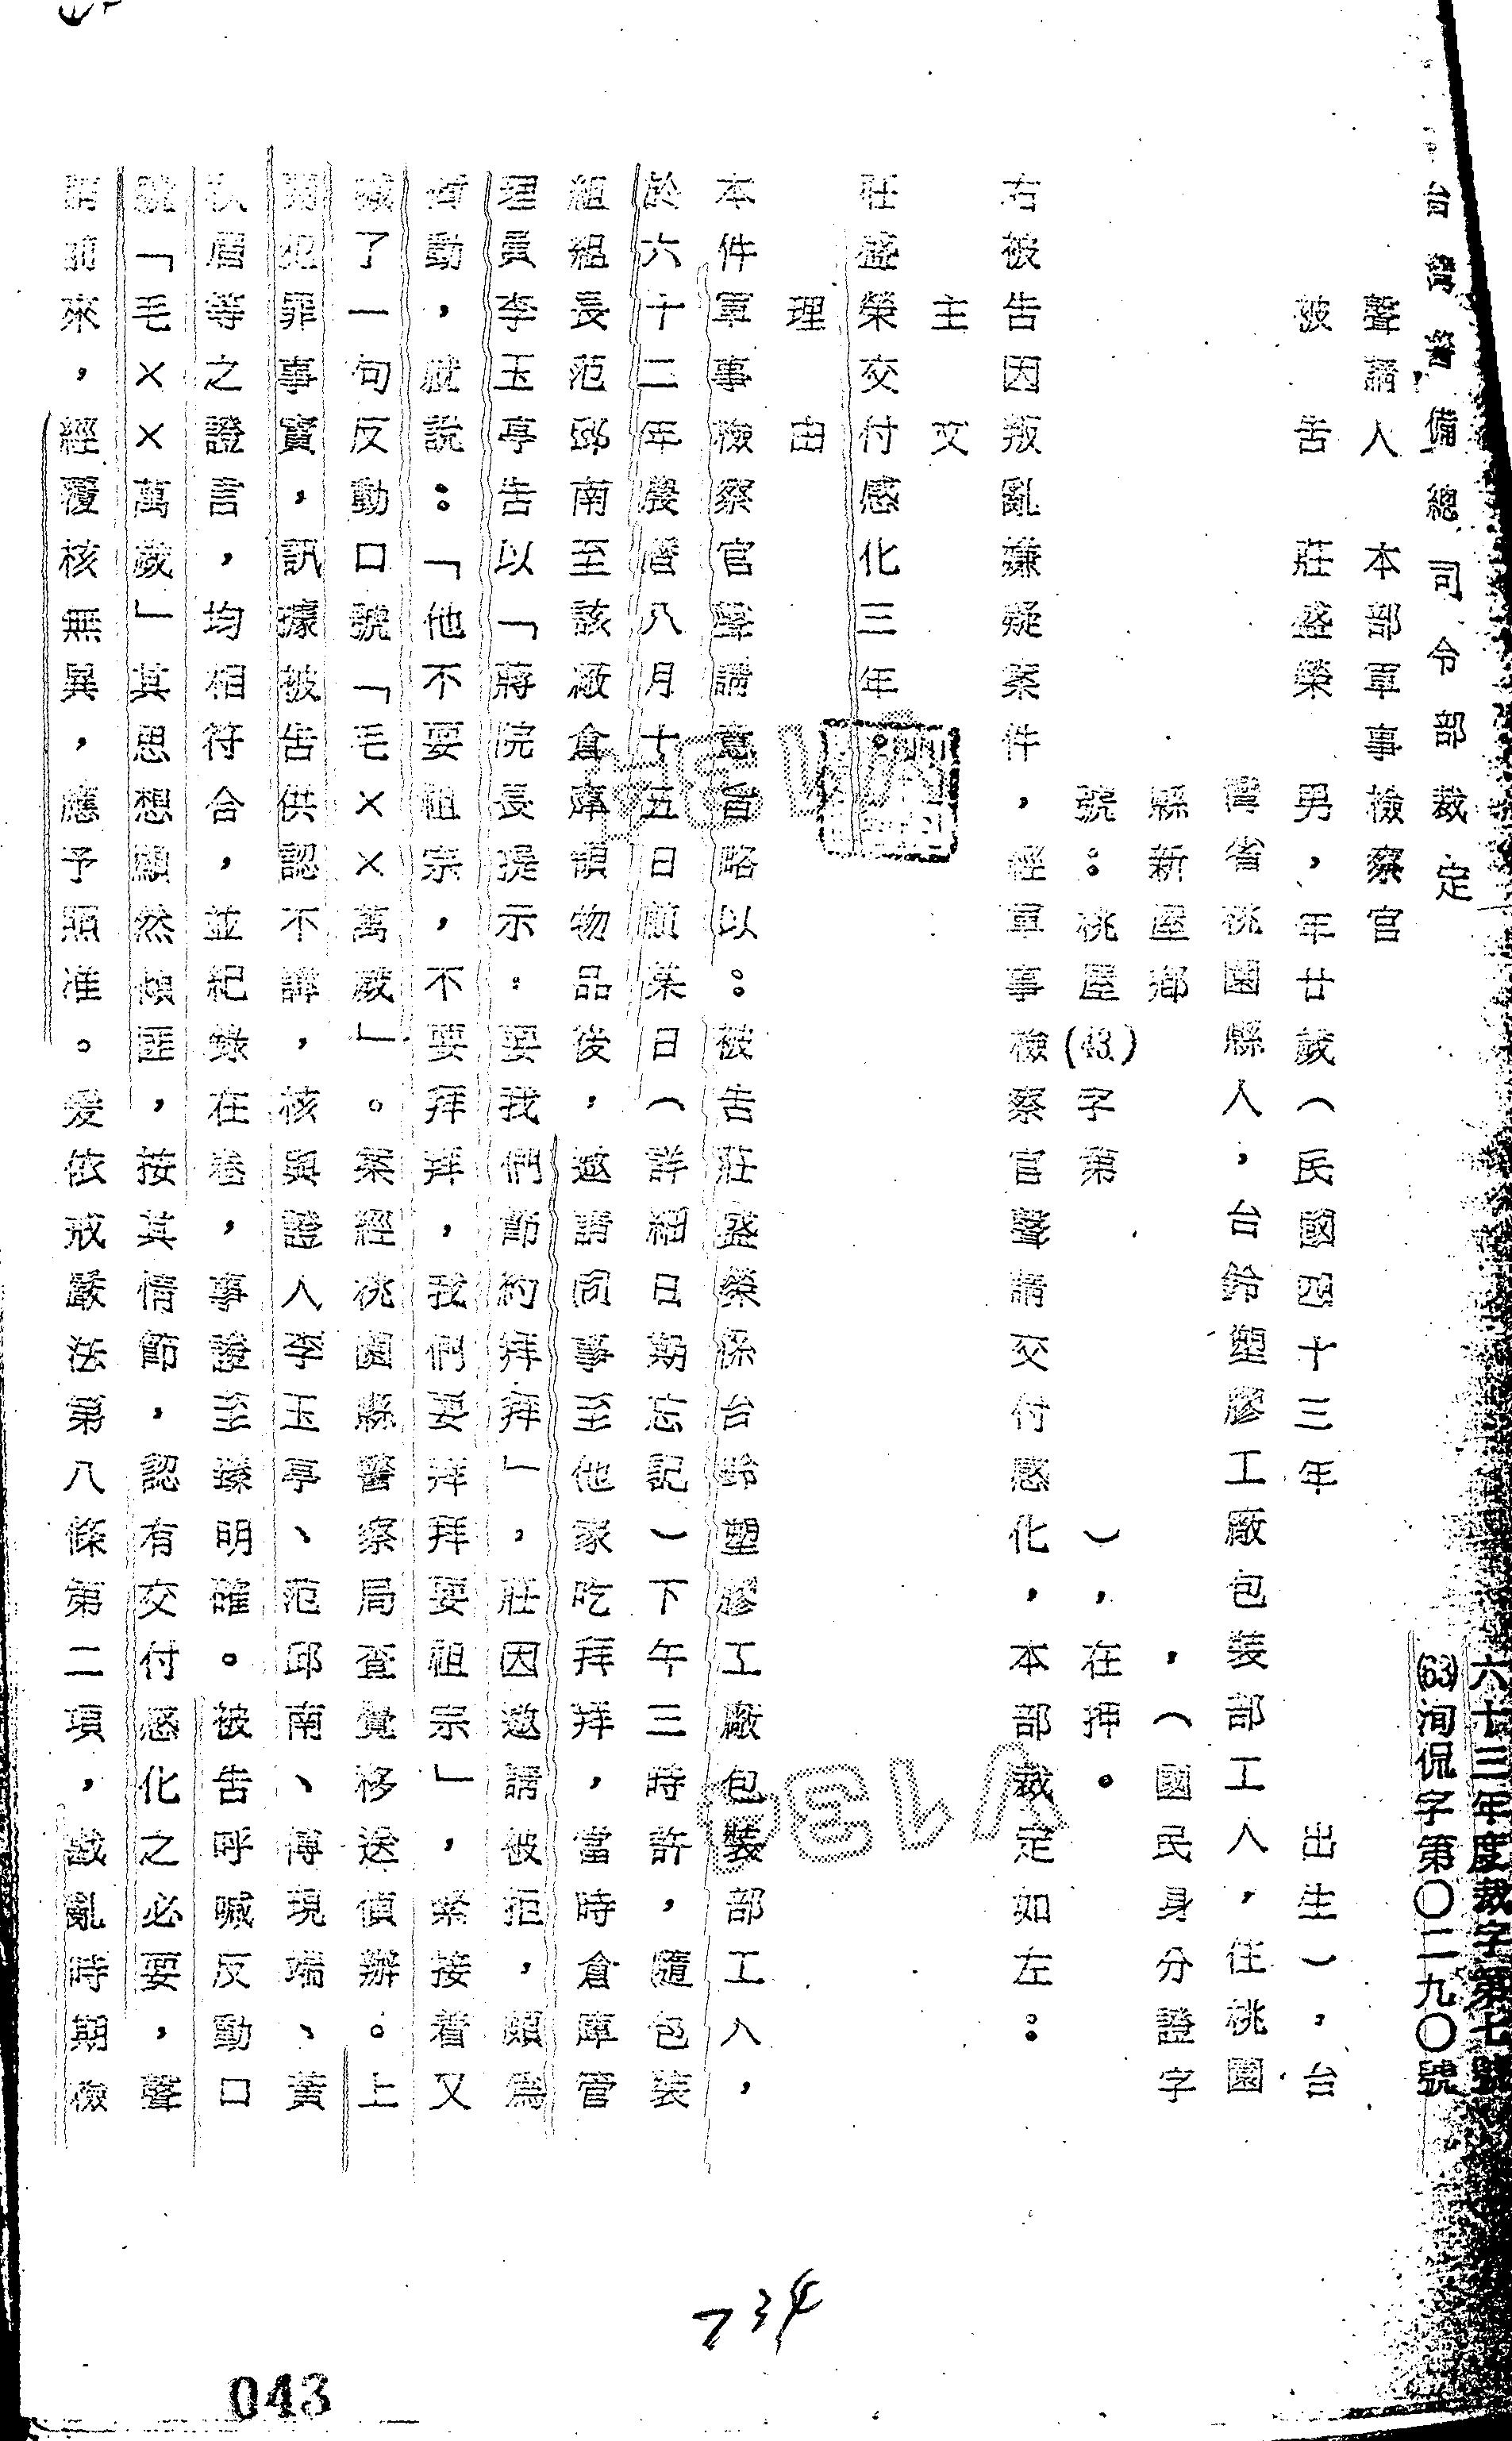 台灣警備總司令部裁定
六十三年度裁字第七號
(63)洵侃字第〇二九〇號
聲請人　本部軍事檢察官
被告　莊盛榮　男，年廿歲（民國四十三年　出生），台
灣省桃園縣人，台鈴塑膠工廠包裝部工人，住桃園
縣新屋鄉　，（國民身分證字
號：桃屋(43)字第　），在押。
右被告因叛亂嫌疑案件，經軍事檢察官聲請交付感化，本部裁定如左：
主文
莊盛榮交付感化三年。
理由
本件軍事檢察官聲請意旨略以：被告莊盛榮係台鈴塑膠工廠包裝部工人，
於六十二年農曆八月十五日前某日（詳細日期忘記）下午三時許，隨包裝
組組長范邱南至該廠倉庫領物品後，邀請同事至他家吃拜拜，當時倉庫管
理員李玉亭告以「蔣院長提示：要我們節約拜拜」，莊因邀請被拒，頗為
衝動，就說：「他不要祖宗，不要拜拜，我們要拜拜要祖宗」，緊接着又
喊了一句反動口號「毛××萬歲」。案經桃園縣警察局查覺移送偵辦。上
開犯罪事實，訊據被告供認不諱，核與證人李玉亭、范邱南、傅現端、黃
秋眉等之證言，均相符合，並紀錄在卷，事證至臻明確。被告呼喊反動口
號「毛××萬歲」其思想顯然傾匪，按其情節，認有交付感化之必要，聲
請前來，經覆核無異，應予照准。爰依戒嚴法第八條第二項，戡亂時期檢
734
043